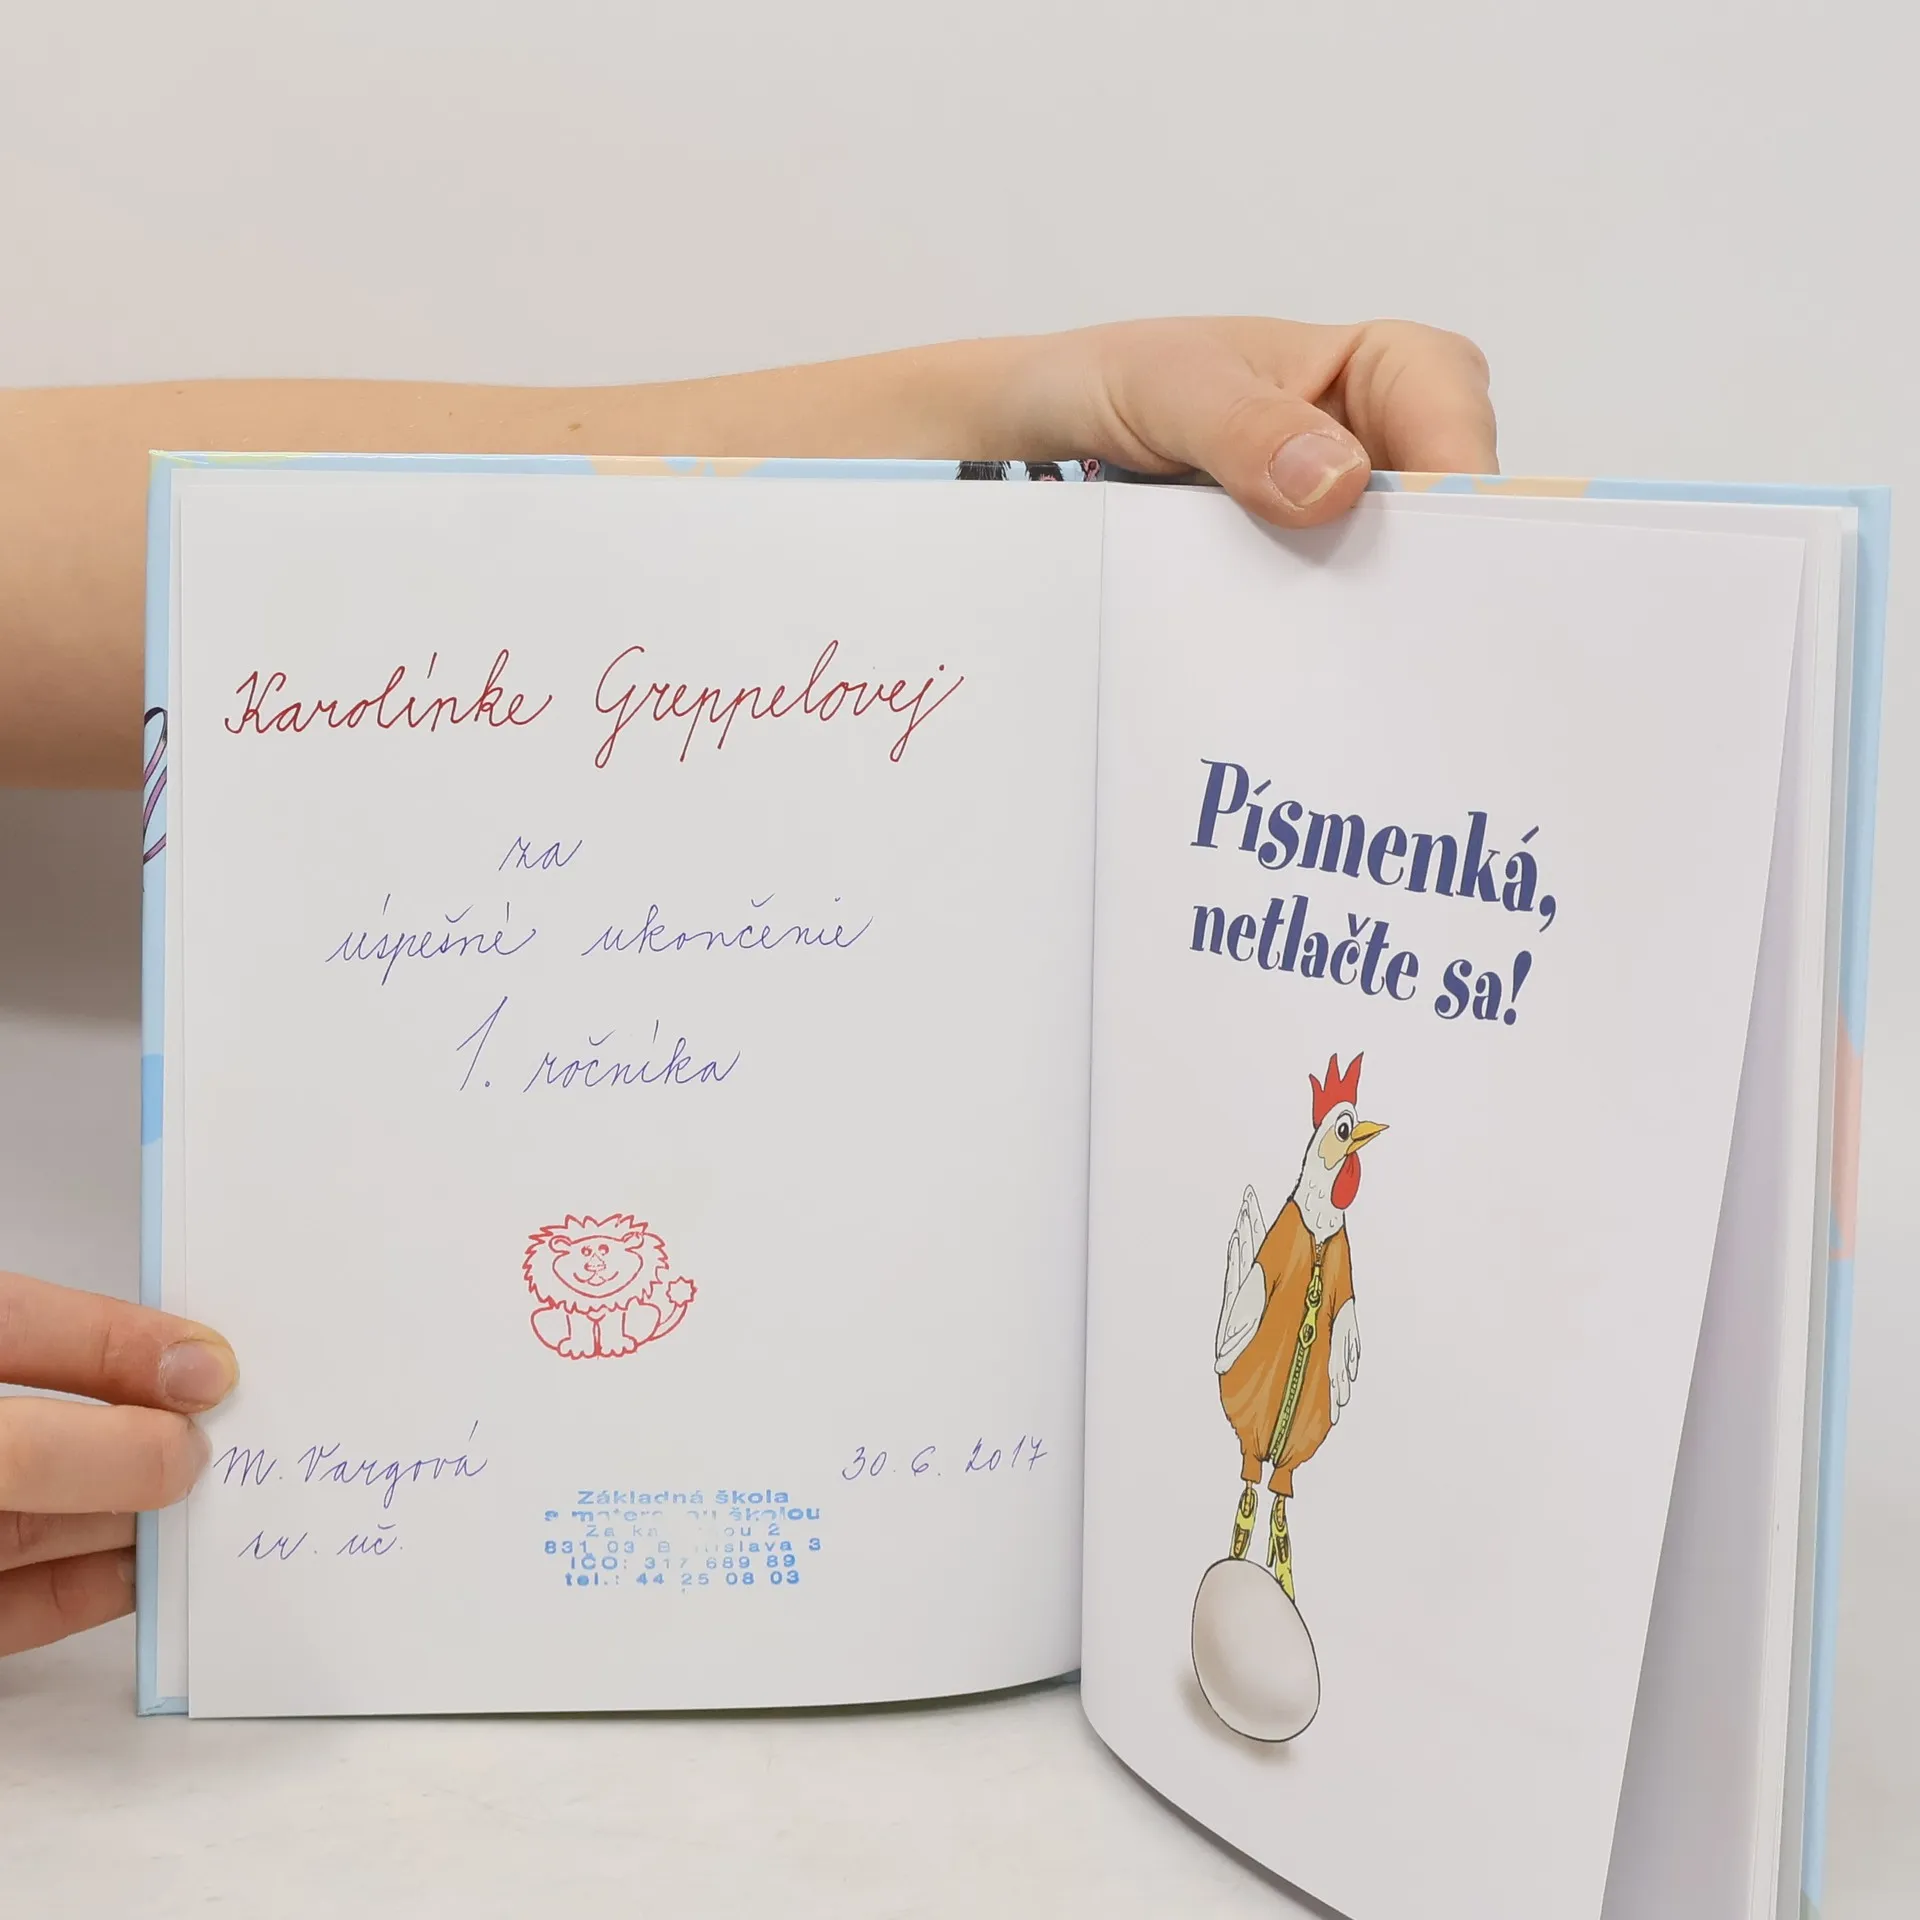 Karolínke Greppelovej
za
úspešné ukončenie
1. ročníka
M. Vargová
tr. uč.
30. 6. 2017
Základná škola
s materskou školou
Za kasárňou 2
831 03 Bratislava 3
IČO: 317 689 89
tel.: 44 25 08 03
Písmenká,
netlačte sa!